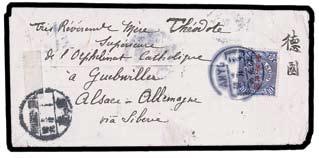 Très Révérende Mère Théodote
Supérieure
de l'Orphelinat Catholique
à Guebwiller
Alsace-Allemagne
via Siberie
德國